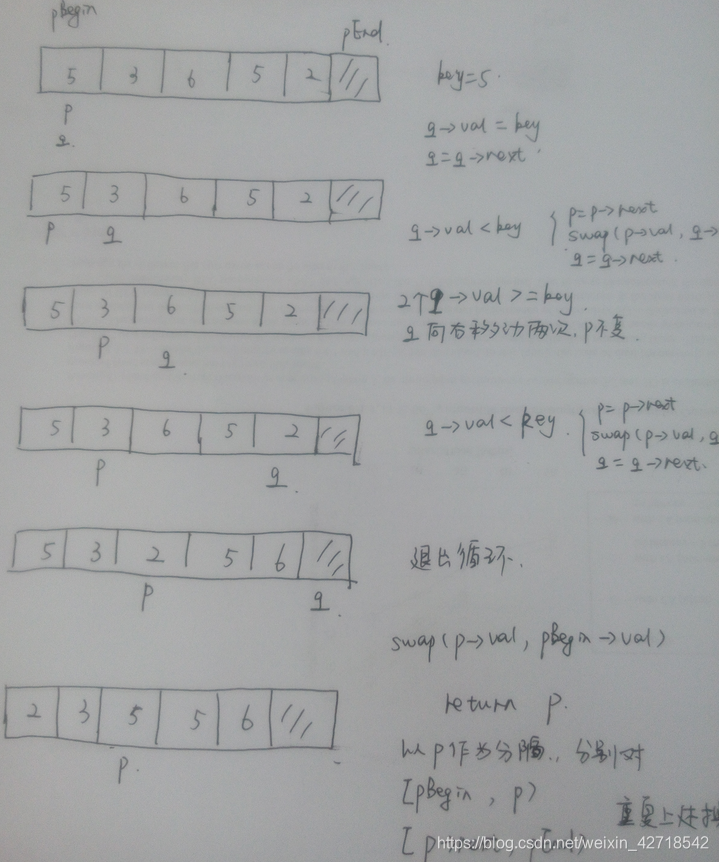 pBegin
pEnd.
5 3 6 5 2
key=5.
p
q.
q→val = key
q=q→next
5 3 6 5 2
p q
q→val < key
p=p→next
swap(p→val, q→
q=q→next.
5 3 6 5 2
2个q→val >= key.
q向右移动两次, p不变.
p q.
5 3 6 5 2
q→val < key.
p=p→next
swap(p→val, q
q=q→next.
p q.
5 3 2 5 6
退出循环.
p q.
swap(p→val, pBegin→val)
2 3 5 5 6
return p.
p.
以p作为分隔., 分别对
[pBegin, p)
重复上述
[p
https://blog.csdn.net/weixin_42718542